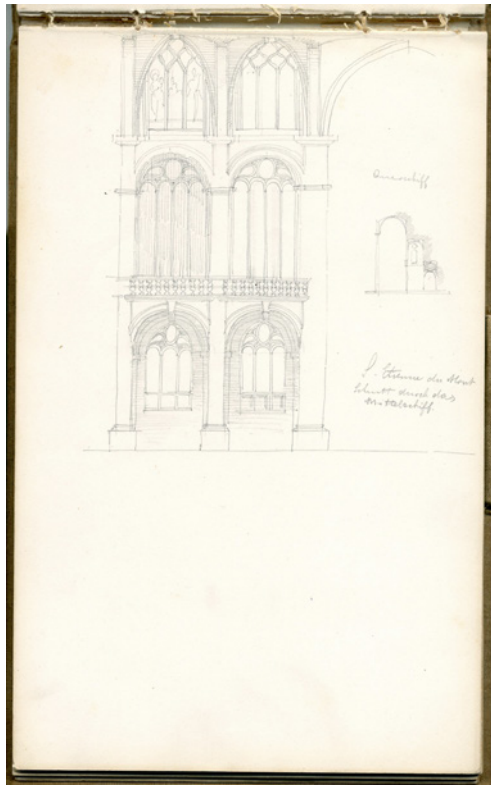 Querschiff
S. Etienne du Mont
Schnitt durch das
Mittelschiff.